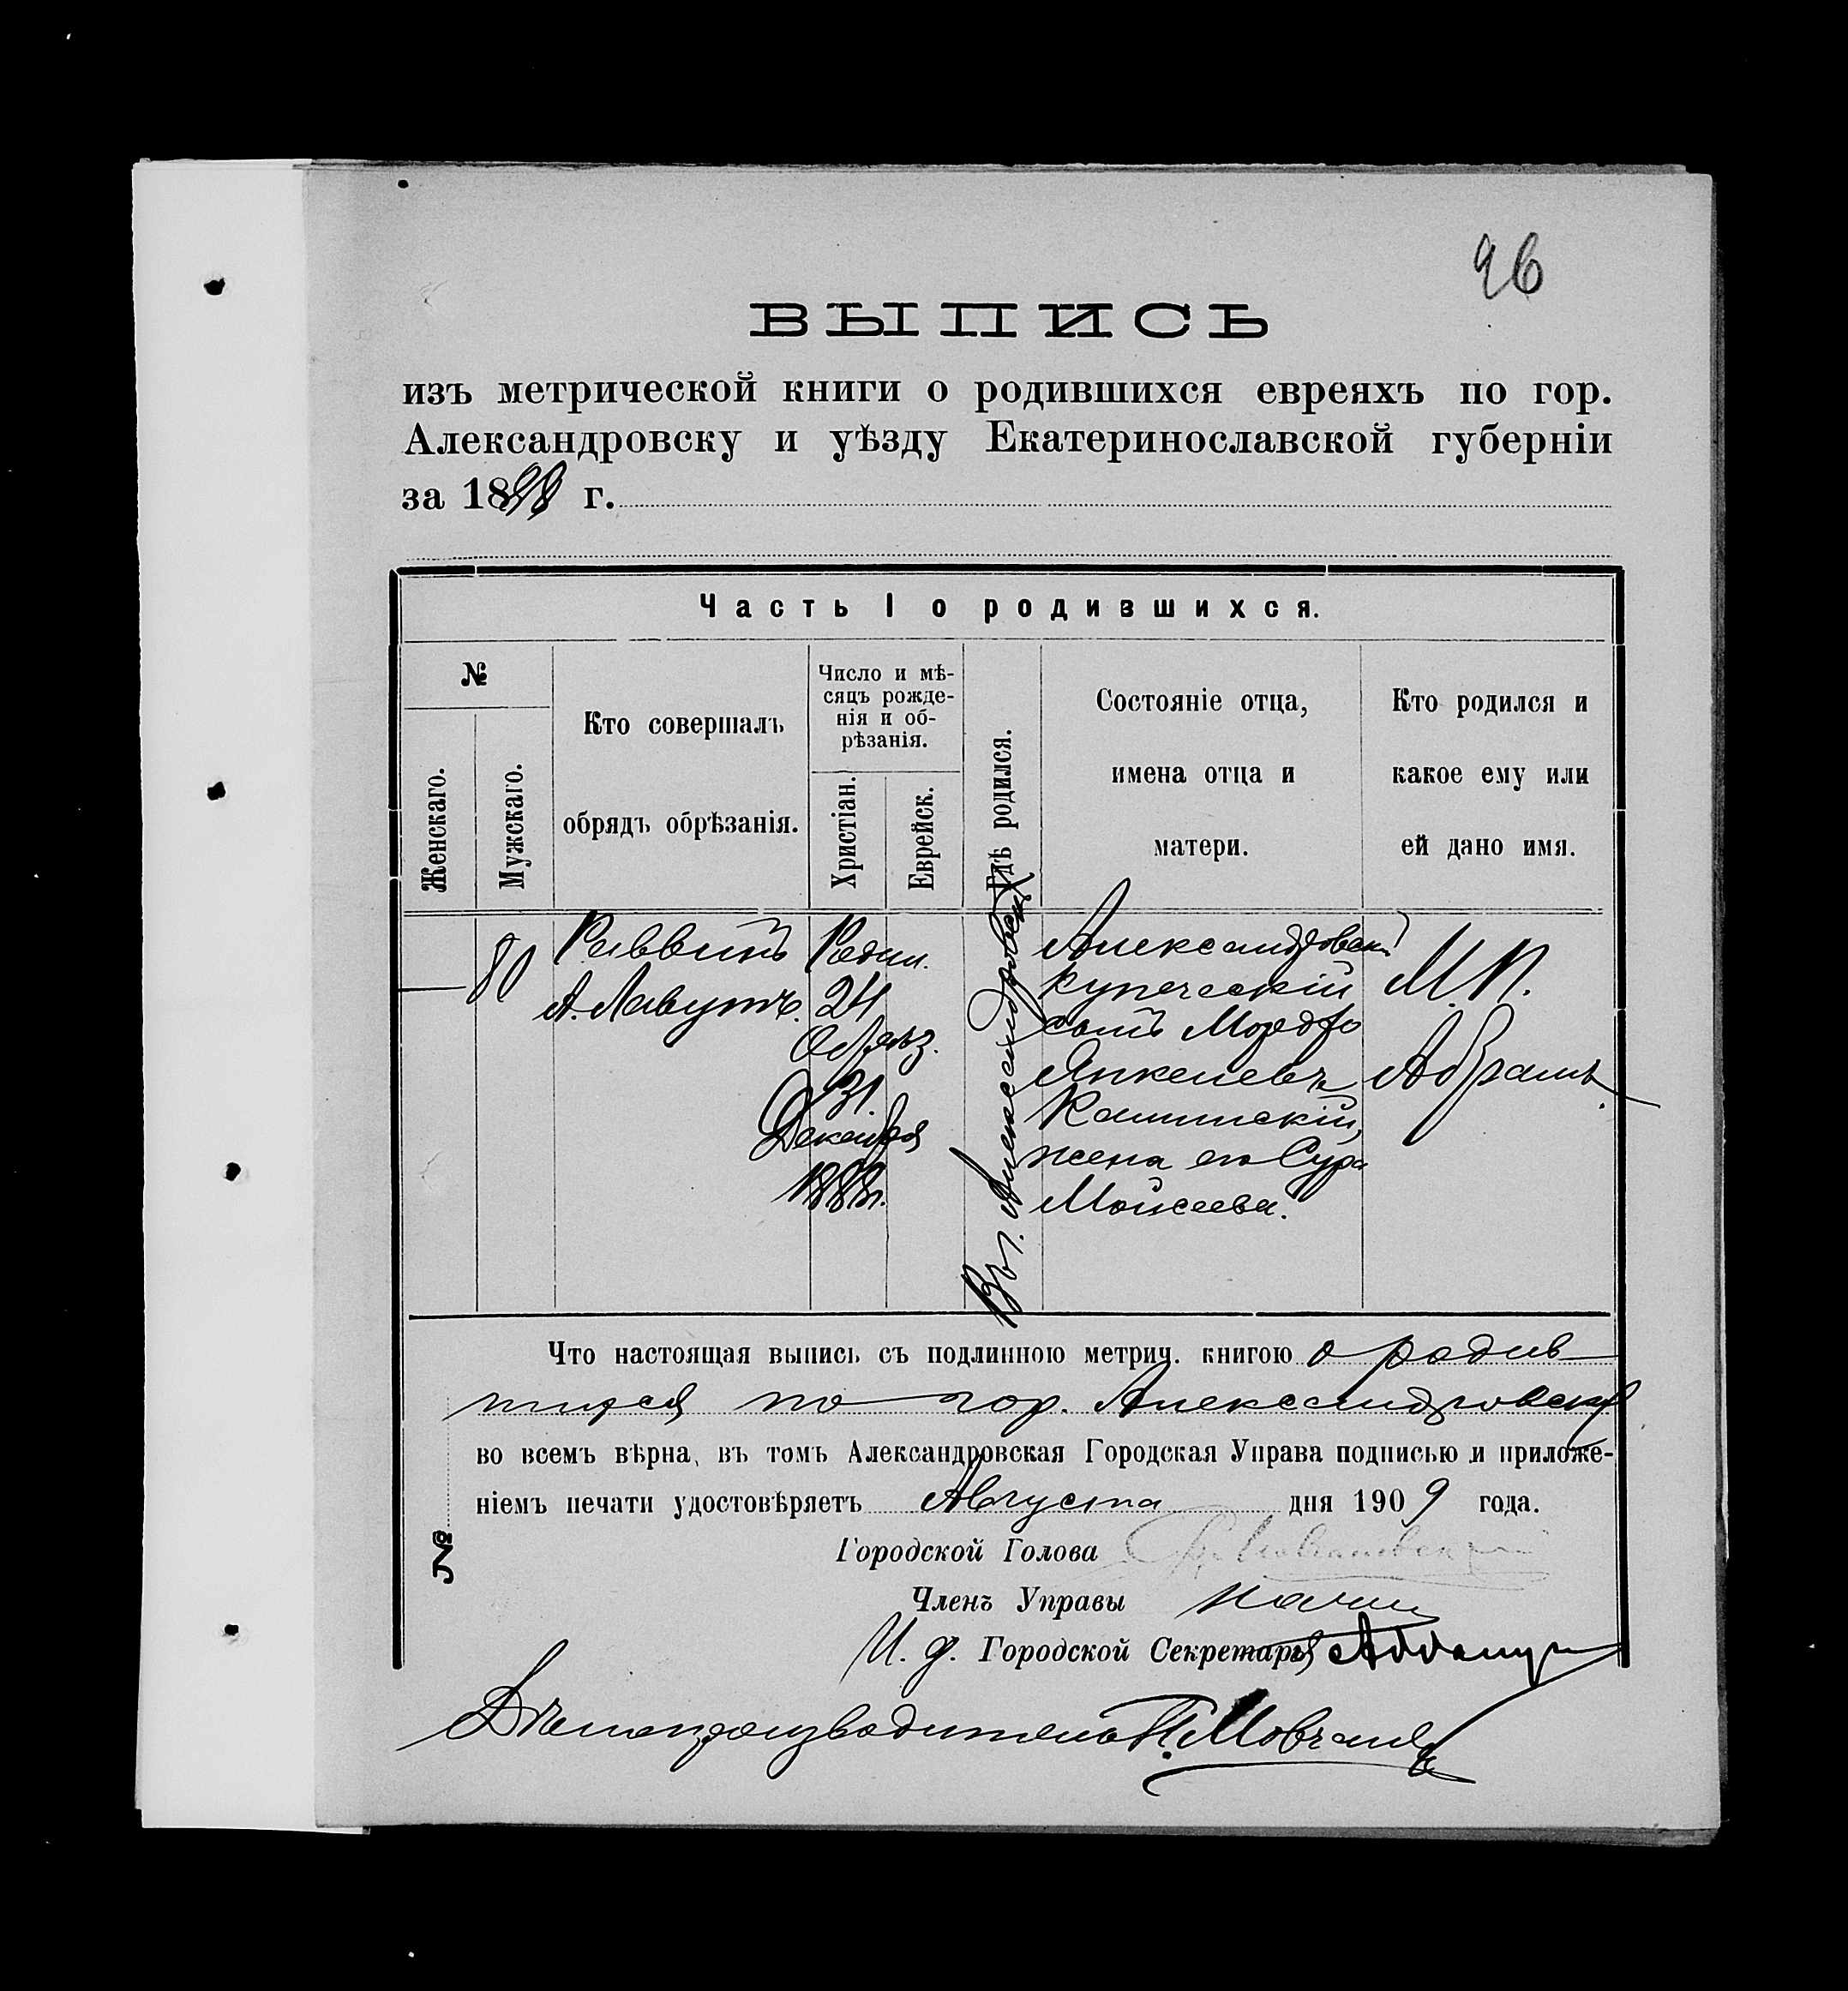 96
ВЫПИСЬ
изъ метрической книги о родившихся евреяхъ по гор.
Александровску и уѣзду Екатеринославской губерніи
за 1888 г.
Часть I о родившихся.
№
Женскаго.
Мужскаго.
Кто совершалъ
обрядъ обрѣзанія.
Число и мѣ-
сяцъ рожде-
нія и об-
рѣзанія.
Христіан.
Еврейск.
Гдѣ родился.
Состояніе отца,
имена отца и
матери.
Кто родился и
какое ему или
ей дано имя.
80
Раввинъ
А. Лавутъ.
Родил.
24
Обрѣз.
31.
Декабря
1888г.
Въ г. Александровскѣ
Александровскій
купеческій
сынъ Мордко
Янкелевъ
жена его Сура
Моисеева.
М. П.
Абрамъ.
Что настоящая выпись съ подлинною метрич. книгою о родив
шихся по гор. Александровску
во всемъ вѣрна, въ томъ Александровская Городская Управа подписью и приложе-
ніемъ печати удостовѣряетъ Августа дня 1909 года.
№
Городской Голова
Членъ Управы
И. д. Городской Секретаря
Дѣлопроизводитель П. Мовчанъ